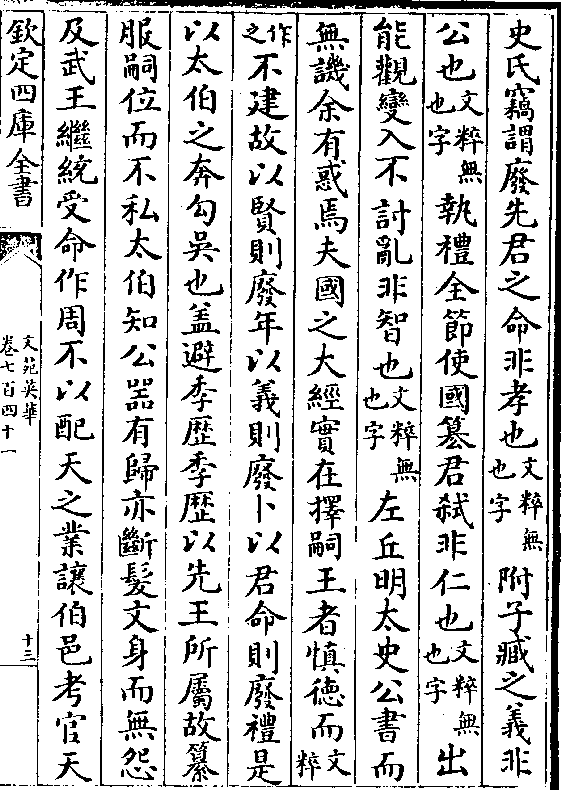 史氏竊謂廢先君之命非孝也文粹無也字附子臧之義非
公也文粹無也字執禮全節使國簒君弑非仁也文粹無也字出
能觀變入不討亂非智也文粹無也字左丘明太史公書而
無譏余有惑焉夫國之大經實在擇嗣王者慎徳而文粹
作之不建故以賢則廢年以義則廢卜以君命則廢禮是
以太伯之奔勾吳也盖避季歴季歴以先王所屬故纂
服嗣位而不私太伯知公器有歸亦斷髮文身而無怨
及武王繼統受命作周不以配天之業讓伯邑考官天
欽定四庫全書
文苑英華
卷七百四十一
十三